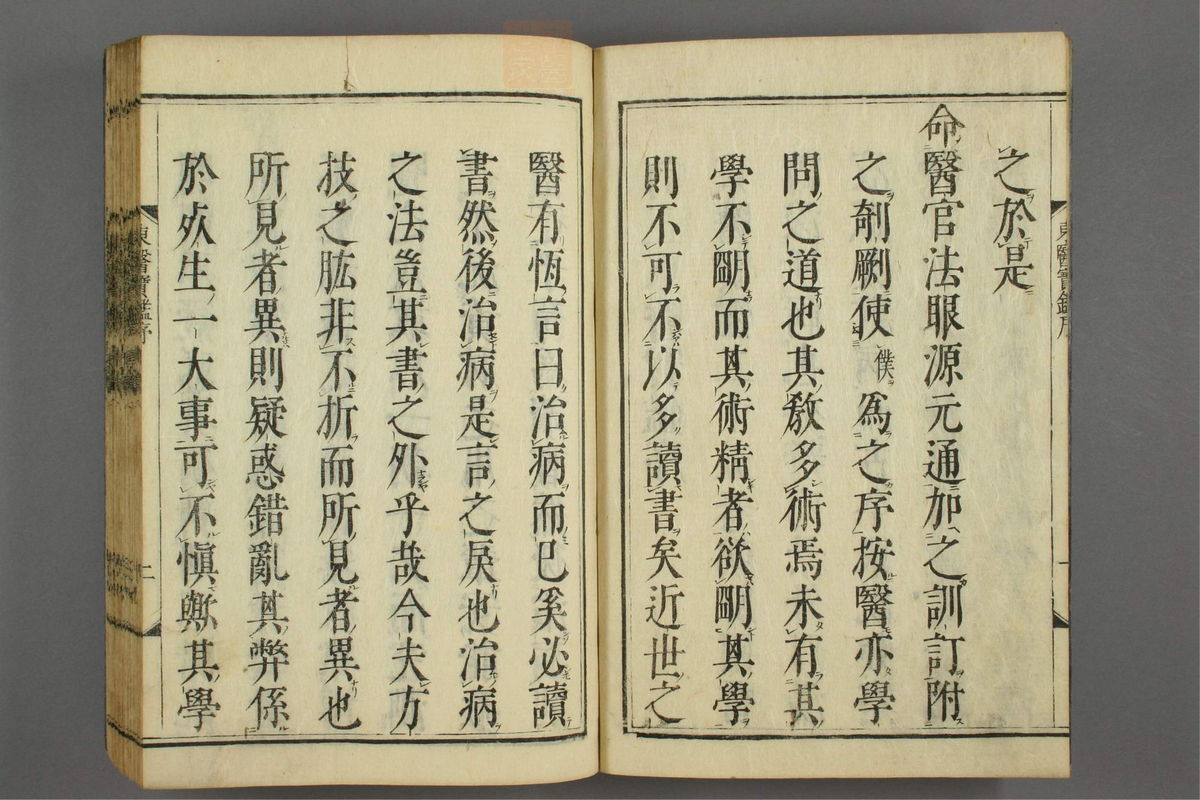 之於是
命醫官法眼源元通加之訓訂附
之剞劂使僕為之序按醫亦學
問之道也其教多術焉未有其
學不明而其術精者欲明其學
則不可不以多讀書矣近世之
醫有恆言曰治病而已奚必讀
書然後治病是言之戾也治病
之法豈其書之外乎哉今夫方
技之肱非不折而所見者異也
所見者異則疑惑錯亂其弊係
於死生一大事可不慎歟其學
東醫寶鑑序
二